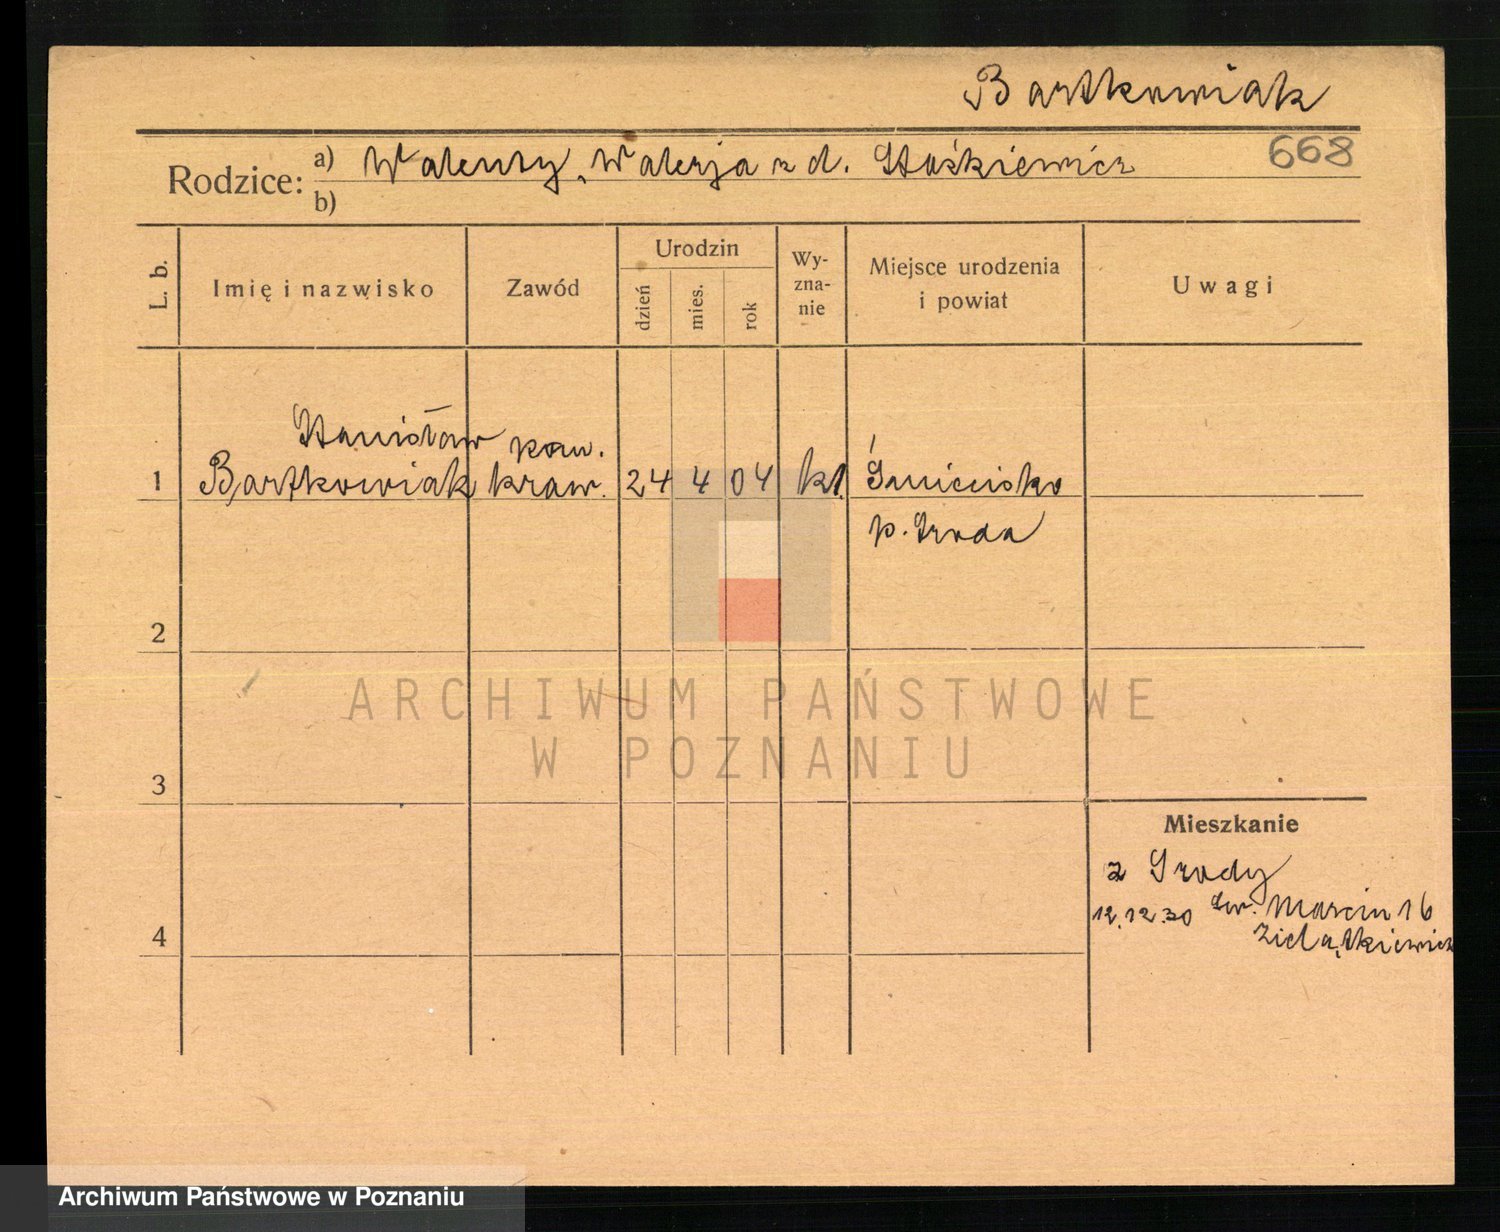 Bartkowiak
668
Rodzice: a) Walenty, Walerja z d. Stośkiewicz
b)
L. b. Imię i nazwisko Zawód Urodzin dzień mies. rok Wy-zna-nie Miejsce urodzenia i powiat Uwagi
Stanisław kaw.
1 Bartkowiak kraw. 24 4 04 kt. Śmiecisko
p. Środa
2
ARCHIWUM PAŃSTWOWE
W POZNANIU
3
Mieszkanie
z Środy
12.12.30 Św. Marcin 16
4
Archiwum Państwowe w Poznaniu